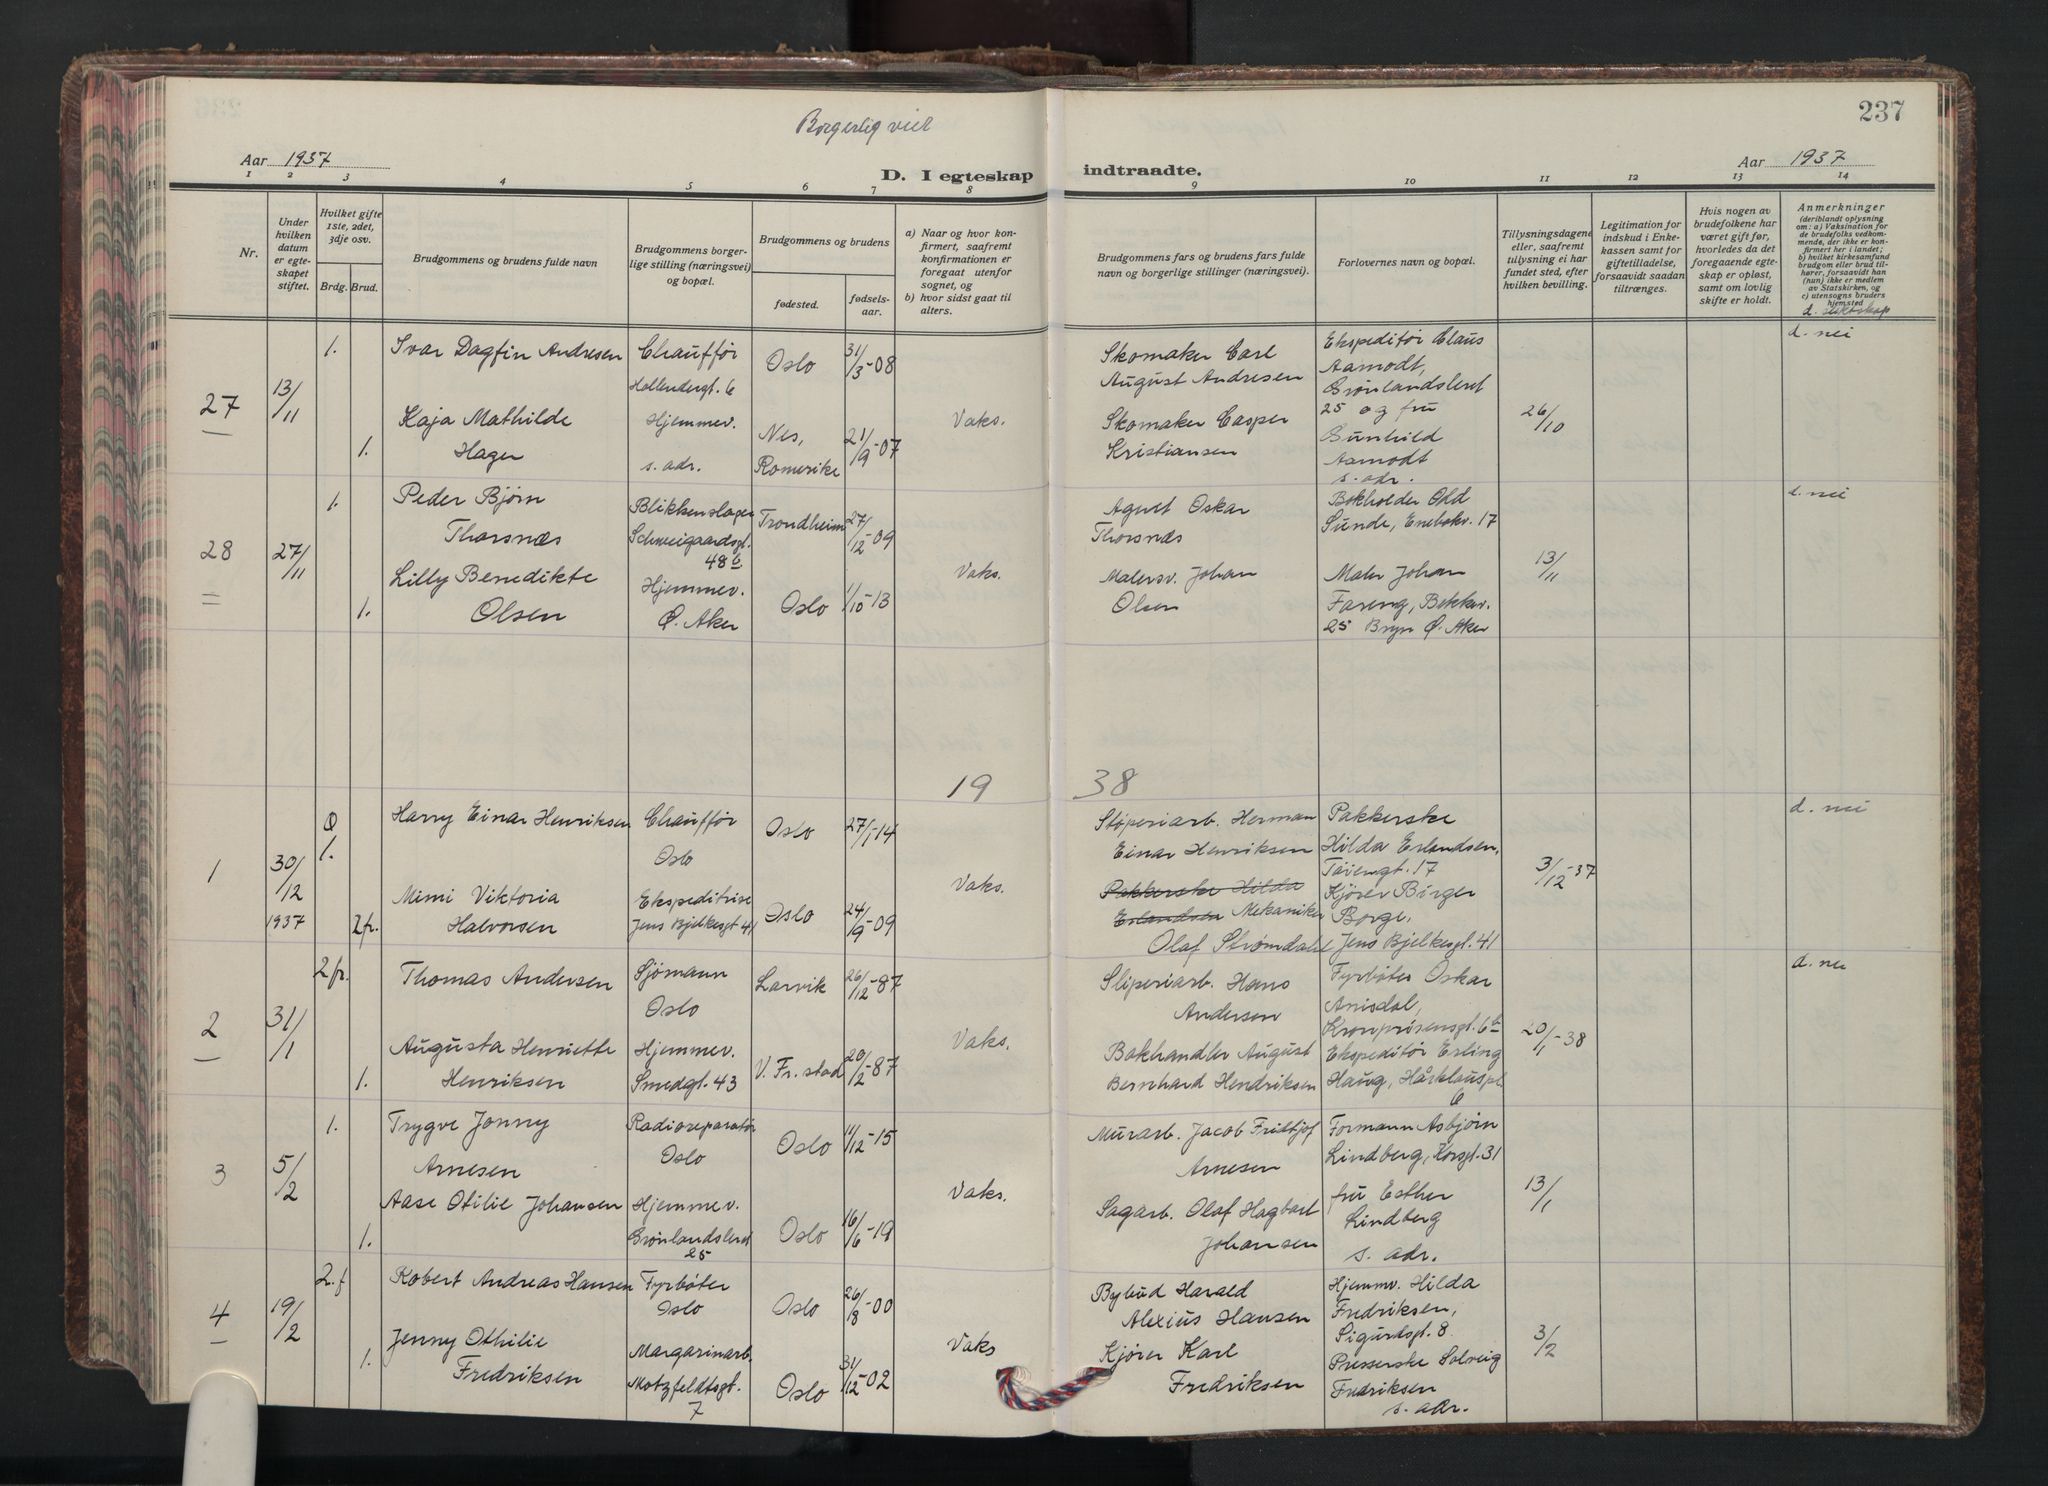 237
Borgerlig viet
Aar 1937
D. I egteskap indtraadte.
Aar 1937
1 2 3 4 5 6 7 8 9 10 11 12 13 14
Nr.
Under
hvilken
datum
er egte-
skapet
stiftet.
Hvilket gifte
1ste, 2det,
3dje osv.
Brdg. Brud.
Brudgommens og brudens fulde navn
Brudgommens borger-
lige stilling (næringsvei)
og bopæl.
Brudgommens og brudens
fødested.
fødsels-
aar.
a) Naar og hvor kon-
firmert, saafremt
konfirmationen er
foregaat utenfor
sognet, og
b) hvor sidst gaat til
alters.
Brudgommens fars og brudens fars fulde
navn og borgerlige stillinger (næringsvei).
Forlovernes navn og bopæl.
Tillysningsdagene
eller, saafremt
tillysning ei har
fundet sted, efter
hvilken bevilling.
Legitimation for
indskud i Enke-
kassen samt for
giftetilladelse,
forsaavidt saadan
tiltrænges.
Hvis nogen av
brudefolkene har
været gift før,
hvorledes da det
foregaaende egte-
skap er opløst,
samt om lovlig
skifte er holdt.
Anmerkninger
(deriblandt oplysning
om: a) Vaksination for
de brudefolks vedkom-
mende, der ikke er kon-
firmert her i landet;
b) hvilket kirkesamfund
brudgom eller brud til-
hører, forsaavidt han
(hun) ikke er medlem
av Statskirken, og
c) utensogns bruders
hjemsted
d.
27
13/11
1.
Ivar Dagfin Andresen
Chauffør
Hollendergt. 6
Oslo
31/3-08
Skomaker Carl
August Andresen
Ekspeditør Claus
Aamodt,
Grønlandsleret
25 og fru
Gunhild
Aamodt
s. adr.
d. nei
1.
Kaja Mathilde
Hagen
Hjemmev.
s. adr.
Nes,
Romerike
21/9-07
Vaks.
Skomaker Casper
Kristiansen
26/10
28
27/11
1.
Peder Bjørn
Thorsnæs
Blikkenslager
Schweigaardsgt.
48b
Trondheim
27/12-09
Agnet Oskar
Thorsnæs
Bokholder Odd
Sunde, Enebakv. 17
d. nei
1.
Lilly Benedikte
Olsen
Hjemmev.
Ø. Aker
Oslo
1/10-13
Vaks.
Malersv. Johan
Olsen
Maler Johan
Fareng, Bekkev.
25 Bryn Ø. Aker
13/11
19 38
1
30/12
1937
1.
Harry Einar Henriksen
Chauffør
Oslo
Oslo
27/1-14
Støperiarb. Herman
Einar Henriksen
Pakkerske
Hilda Erlandsen,
Tøiengt. 17
d. nei
2 fr.
Mimi Viktoria
Halvorsen
Ekspeditrise
Jens Bjelkesgt 41
Oslo
24/9-09
Vaks.
Pakkerske Hilda
Erlandsen Mekaniker
Olaf Strømdahl
Kjører Birger
Borge,
Jens Bjelkesgt. 41
3/12-37
2
31/1
2 fr.
Thomas Andersen
Sjømann
Oslo
Larvik
26/12-87
Sliperiarb. Hans
Andersen
Fyrbøter Oskar
Anisdal,
Kronprinsensgt. 6b
d. nei
1.
Augusta Henriette
Henriksen
Hjemmev.
Smedgt. 43
V. Fr.stad
20/2-87
Vaks.
Bokhandler August
Bernhard Hendriksen
Ekspeditør Erling
Haug, Hårklauspl.
6
20/1-38
3
5/2
1.
Trygve Jonny
Arnesen
Radioreparatør
Oslo
Oslo
11/12-15
Murarb. Jacob Fridtjof
Arnesen
Formann Asbjørn
Lindberg, Korsgt. 31
1.
Aase Otilie Johansen
Hjemmev.
Grønlandsleret
25
Oslo
16/6-19
Vaks.
Sagarb. Olaf Hagbart
Johansen
fru Esther
Lindberg
s. adr.
13/1
4
19/2
2. f
Robert Andreas Hansen
Fyrbøter
Oslo
Oslo
26/8-00
Bybud Harald
Alexius Hansen
Hjemmv. Hilda
Fredriksen,
Sigurdsgt. 8
1.
Jenny Othilie
Fredriksen
Margarinarb.
Motzfeldtsgt.
7
Oslo
31/12-02
Vaks
Kjører Karl
Fredriksen
Presserske Solveig
Fredriksen
s. adr.
3/2